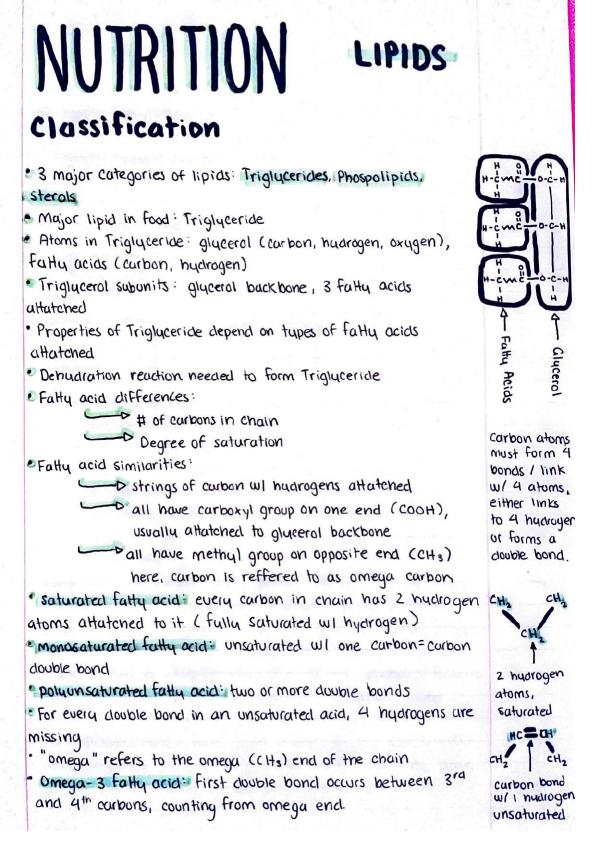 NUTRITION LIPIDS
Classification
• 3 major categories of lipids: Triglycerides, Phospolipids,
sterols
• Major lipid in food: Triglyceride
• Atoms in Triglyceride: glycerol (carbon, hydrogen, oxygen),
fatty acids (carbon, hydrogen)
• Triglycerol subunits: glycerol backbone, 3 fatty acids
attatched
• Properties of Triglyceride depend on types of fatty acids
attatched
• Dehydration reaction needed to form Triglyceride
• Fatty acid differences:
# of carbons in chain
Degree of saturation
• Fatty acid similarities:
strings of carbon w/ hydrogens attatched
all have carboxyl group on one end (COOH),
usually attatched to glycerol backbone
all have methyl group on opposite end (CH₃)
here, carbon is reffered to as omega carbon
• saturated fatty acid: every carbon in chain has 2 hydrogen
atoms attatched to it (fully saturated w/ hydrogen)
• monosaturated fatty acid: unsaturated w/ one carbon=carbon
double bond
• polyunsaturated fatty acid: two or more double bonds
• For every double bond in an unsaturated acid, 4 hydrogens are
missing
• "omega" refers to the omega (CH₃) end of the chain
• Omega-3 fatty acid: First double bond occurs between 3rd
and 4th carbons, counting from omega end.
H O H
H-C-C-O-C-H
H
H O
H-C-C-O-C-H
H
H O
H-C-C-O-C-H
H H
Fatty Acids
Glycerol
carbon atoms
must form 4
bonds / link
w/ 4 atoms,
either links
to 4 hydrogen
or forms a
double bond.
CH₂ CH₂
CH₂
2 hydrogen
atoms,
saturated
HC=CH
CH₂ CH₂
carbon bond
w/ 1 hydrogen
unsaturated